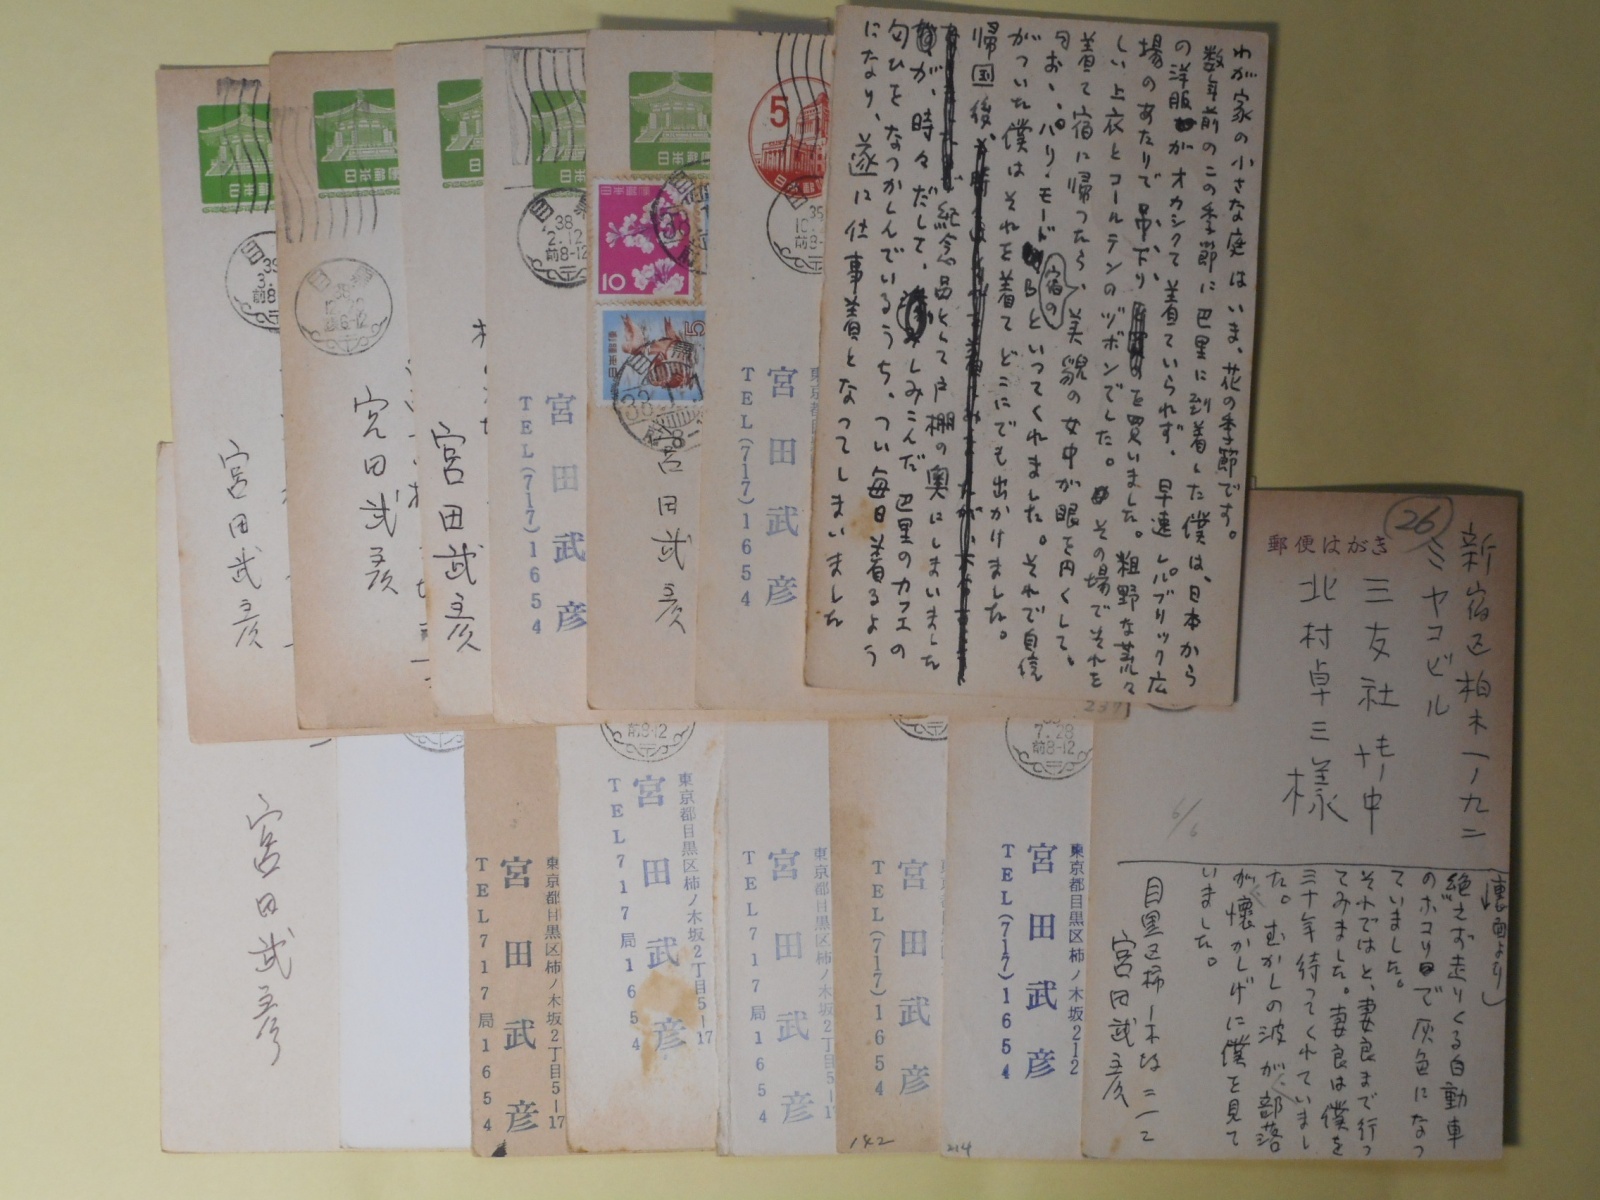 わが家の小さな庭はいま、花の季節です。
数年前のこの季節に巴里に到着した僕は、日本から
の洋服がオカシクて着ていられず、早速レパブリック広
場のあたりで吊下りを買いました。粗野な荒々
しい上衣とコールテンのヅボンでした。その場でそれを
着て宿に帰ったら、宿の美貌の女中が眼を円くして。
お、パリ・モードといってくれました。それで自信
がついた僕はそれを着てどこにでも出かけました。
帰国後、
記念品として戸棚の奥にしまいました
が、時々だして、しみこんだ巴里のカフエの
匂ひをなつかしんでいるうち、つい毎日着るよう
になり、遂に仕事着となってしまいました
237
郵便はがき
26
新宿区柏木一ノ九二
ミヤコビル
三友社
北村卓三様
6/6
(裏面より)
絶えず走りくる自動車
のホコリで灰色になっ
ていました。
それではと、妻良まで行っ
てみました。妻良は僕を
三十年待ってくれていまし
た。むかしの波が、部落
が懐かしげに僕を見て
いました。
目黒区柿ノ木坂二一二
宮田武彦
日本郵便
39
3.
前8-
宮田武彦
日本郵便
宮田武彦
日本郵便
宮田武彦
日本郵便
38
2.12
前8-12
宮田武彦
TEL(717)1654
日本郵便
日本郵便
10
5
宮田武彦
5
日本郵便
35
宮田武彦
TEL(717)1654
宮田武彦
東京都目黒区柿ノ木坂2丁目5-17
宮田武彦
TEL717局1654
前8-12
東京都目黒区柿ノ木坂2丁目5-17
宮田武彦
TEL717局1654
東京都目黒区柿ノ木坂2丁目5-1
宮田武彦
TEL717局1654
宮田武彦
TEL(717)1654
142
7.28
前8-12
東京都目黒区柿ノ木坂212
宮田武彦
TEL(717)1654
214